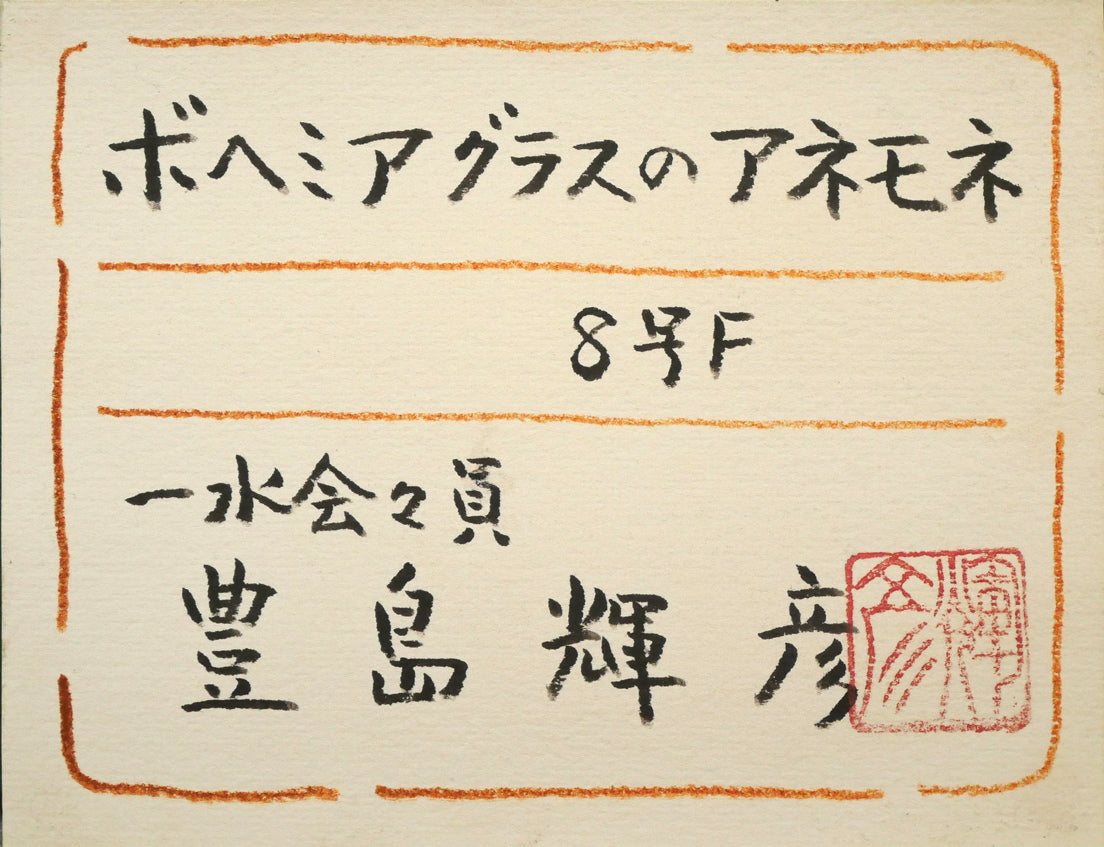 ボヘミアグラスのアネモネ
8号F
一水会々員
豊島輝彦
輝彦